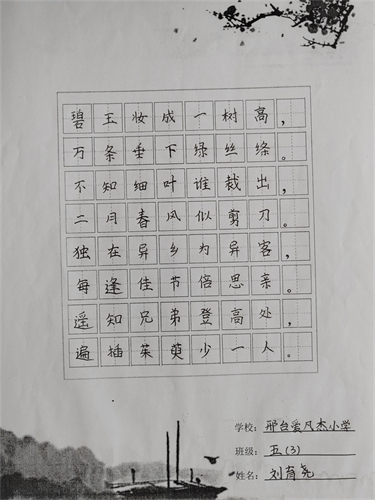 碧玉妆成一树高，
万条垂下绿丝绦。
不知细叶谁裁出，
二月春风似剪刀。
独在异乡为异客，
每逢佳节倍思亲。
遥知兄弟登高处，
遍插茱萸少一人。
学校：邢台爱凡杰小学
班级：五(3)
姓名：刘育尧